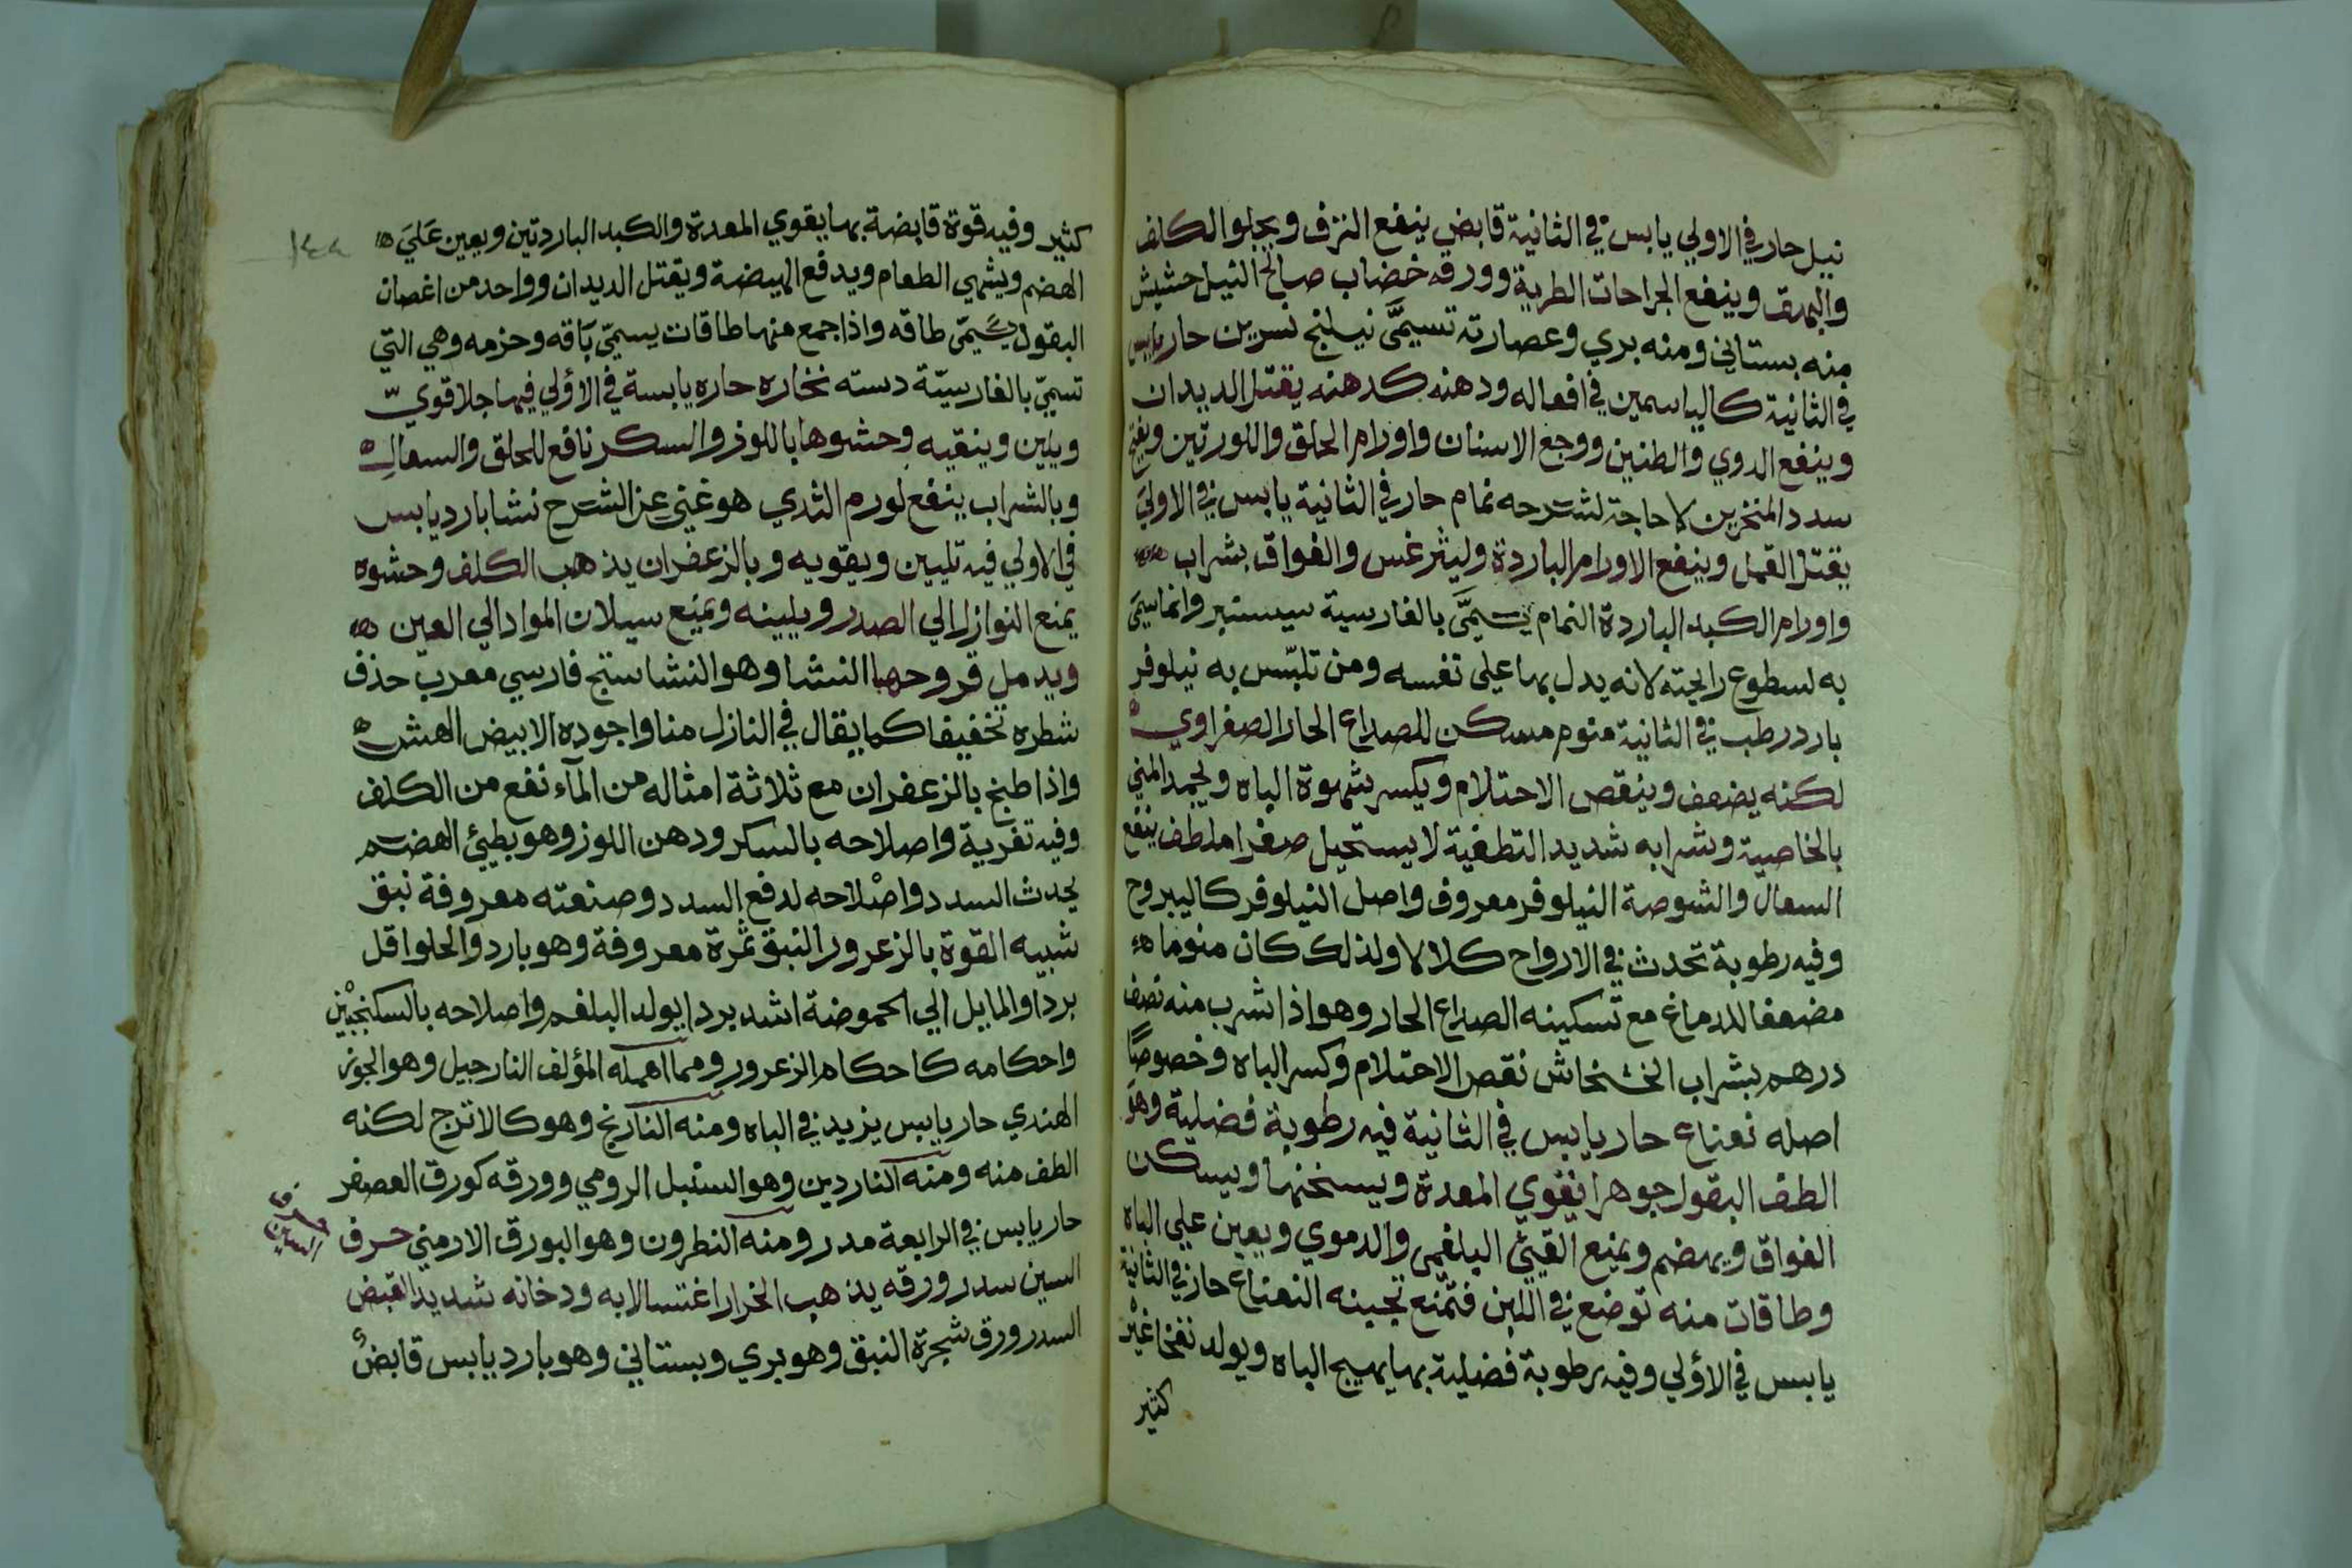 نيل حار في الاولي يابس في الثانية قابض ينفع النزف ويجلو الكلف
والبهق وينفع الجراحات الطرية وورقه خضاب صالح النيل حشيش
منه بستاني ومنه بري وعصارته تسمىَّ نيلنج نسرين حار يابس
في الثانية كالياسمين في افعاله ودهنه كدهنه يقتل الديدان
وينفع الدوي والطنين ووجع الاسنان واورام الحلق واللوزتين ويفتح
سدد المنخرين لا حاجة لشرحه نمام حار في الثانية يابس في الاوليَ
يقتل القمل وينفع الاورام الباردة وليثرغس والفواق بشراب
واورام الكبد الباردة النمام يسمىَّ بالفارسية سيسنبر وانما سمىَ
به لسطوع رايحته لانه يدل بها على نفسه ومن تلبّس به نيلوفر
بارد رطب في الثانية منوم مسكن للصداع الحار الصفراوي
لكنه يضعف وينقص الاحتلام ويكسر شهوة الباه ويجمد المني
بالخاصية وشرابه شديد التطفية لا يستحيل صفرا ملطف ينفع
السعال والشوصة النيلوفر معروف واصل النيلوفر كاليبروح
وفيه رطوبة تحدث في الارواح كلالا ولذلك كان منوما
مضعفا للدماغ مع تسكينه الصداع الحار وهو اذا شرب منه نصف
درهم بشراب الخشخاش نقص الاحتلام وكسر الباه وخصوصًا
اصله نعناع حار يابس في الثانية فيه رطوبة فضلية وهوَ
الطف البقول جوهرا يقوي المعدة ويسخنها ويسكن
الفواق ويهضم ويمنع القيئ البلغمي والدموي ويعين علي الباه
وطاقات منه توضع في اللبن فتمّنع تجبينه النعناع حار في الثانية
يابس في الاؤلي وفيه رطوبة فضلية بها يهيج الباه ويولد نفخا غيْر
كثير
كثير وفيه قوة قابضة بها يقوي المعدة والكبد الباردتين ويعين عَليَ
الهضم ويشهي الطعام ويدفع الهيضة ويقتل الديدان وواحد من اغصان
البقول يسَّمىّ طاقه واذا جمع منها طاقات يسمىّ بَاقه وحزمه وهي التي
تسمىّ بالفارسيّة دسته نخاره حاره يابسة في الاؤلي فيها جلا قويّ
ويلين وينقيه وحشوها باللوز والسكر نافع للحلق والسعالِ
وبالشراب ينفع لورم الثدي هو غني عن الشرح نشا بارد يابس
في الاولي فيه تليين ويقوّيه وبالزعفران يذهب الكلف وحشوه
يمنع النوازل الي الصدر ويلينه ويمنع سيلان المواد الي العين
ويدمل قروحها النشا وهو النشاستج فارسي معرب حذف
شطره تخفيفا كما يقال في النازل منا واجوده الابيض الهش
واذا طبخ بالزعفران مع ثلاثة امثاله من المآء نفع من الكلف
وفيه تغرية واصلاحه بالسكر ودهن اللوز وهو بطيئ الهضم
يحدث السدد واصْلاحه لدفع السدد وصنعته معروفة نبق
شبيه القوة بالزعرور النبق ثمرة معروفة وهو بارد والحلو اقل
بردا والمايل الي الحموضة اشد بردا يولد البلغم واصلاحه بالسكنجبيْن
واحكامه كاحكام الزعرور ومما اهمله المؤلف النارجيل وهو الجوز
الهندي حار يابس يزيد في الباه ومنه النارنج وهو كالاترج لكنه
الطف منه ومنه الناردين وهو السنبل الرومي وورقه كورق العصفر
حار يابس في الرابعة مدر ومنه النطرون وهو البورق الارمني حرف
السين سدر ورقه يذهب الخراز اغتسالا به ودخانه شديد القبض
السدر ورق شجرة النبق وهو بري وبستاني وهو بارد يابس قابضٌ
حرف
السين